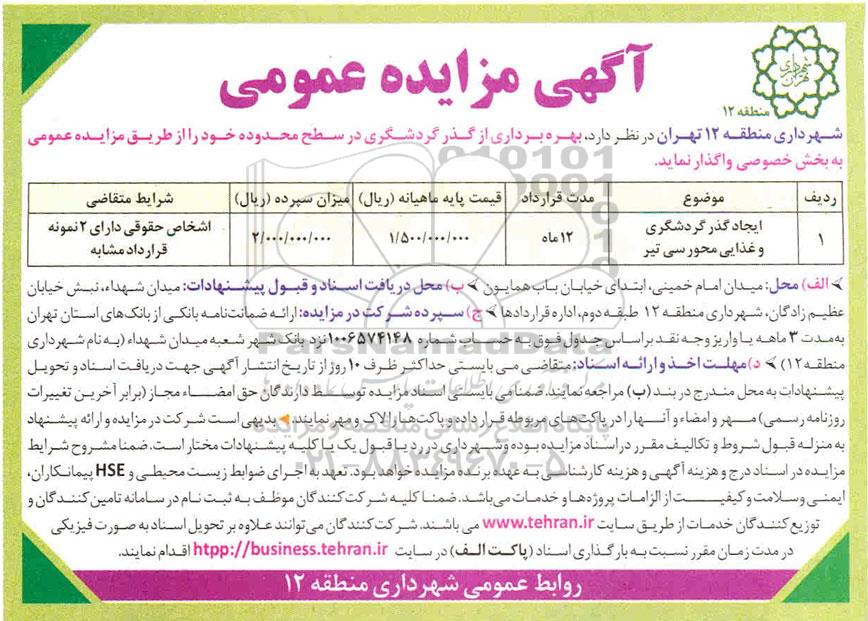 آگهی مزایده عمومی
شهرداری تهران
منطقه ۱۲
شهرداری منطقه ۱۲ تهران در نظر دارد، بهره برداری از گذر گردشگری در سطح محدوده خود را از طریق مزایده عمومی
به بخش خصوصی واگذار نماید.
ردیف موضوع مدت قرارداد قیمت پایه ماهیانه (ریال) میزان سپرده (ریال) شرایط متقاضی
۱ ایجاد گذر گردشگری و غذایی محور سی تیر ۱۲ ماه ۱/۵۰۰/۰۰۰/۰۰۰ ۲/۰۰۰/۰۰۰/۰۰۰ اشخاص حقوقی دارای ۲ نمونه قرارداد مشابه
الف) محل: میدان امام خمینی، ابتدای خیابان باب همایون ب) محل دریافت اسناد و قبول پیشنهادات: میدان شهداء، نبش خیابان
عظیم زادگان، شهرداری منطقه ۱۲ طبقه دوم، اداره قراردادها ج) سپرده شرکت در مزایده: ارائه ضمانت‌نامه بانکی از بانک‌های استان تهران
به مدت ۳ ماهه یا واریز وجه نقد براساس جدول فوق به حساب شماره ۱۰۰۶۵۷۴۱۴۸ نزد بانک شهر شعبه میدان شهداء (به نام شهرداری
منطقه ۱۲) د) مهلت اخذ و ارائه اسناد: متقاضی می بایستی حداکثر ظرف ۱۰ روز از تاریخ انتشار آگهی جهت دریافت اسناد و تحویل
پیشنهادات به محل مندرج در بند (ب) مراجعه نمایند. ضمنا می بایستی اسناد مزایده توسط دارندگان حق امضاء مجاز (برابر آخرین تغییرات
روزنامه رسمی) مهر و امضاء و آنها را در پاکت‌های مربوطه قرار داده و پاکت‌ها را لاک و مهر نمایند. بدیهی است شرکت در مزایده و ارائه پیشنهاد
به منزله قبول شروط و تکالیف مقرر در اسناد مزایده بوده و شهرداری در رد یا قبول یک یا کلیه پیشنهادات مختار است. ضمنا مشروح شرایط
مزایده در اسناد درج و هزینه آگهی و هزینه کارشناسی به عهده برنده مزایده خواهد بود. تعهد به اجرای ضوابط زیست محیطی و HSE پیمانکاران،
ایمنی و سلامت و کیفیت از الزامات پروژه‌ها و خدمات می‌باشد. ضمنا کلیه شرکت کنندگان موظف به ثبت نام در سامانه تامین کنندگان و
توزیع کنندگان خدمات از طریق سایت www.tehran.ir می باشند. شرکت کنندگان می توانند علاوه بر تحویل اسناد به صورت فیزیکی
در مدت زمان مقرر نسبت به بارگذاری اسناد (پاکت الف) در سایت htpp://business.tehran.ir اقدام نمایند.
روابط عمومی شهرداری منطقه ۱۲
ParsNamadData
۰۲۱-۸۸۳۴۹۶۷۰-۵